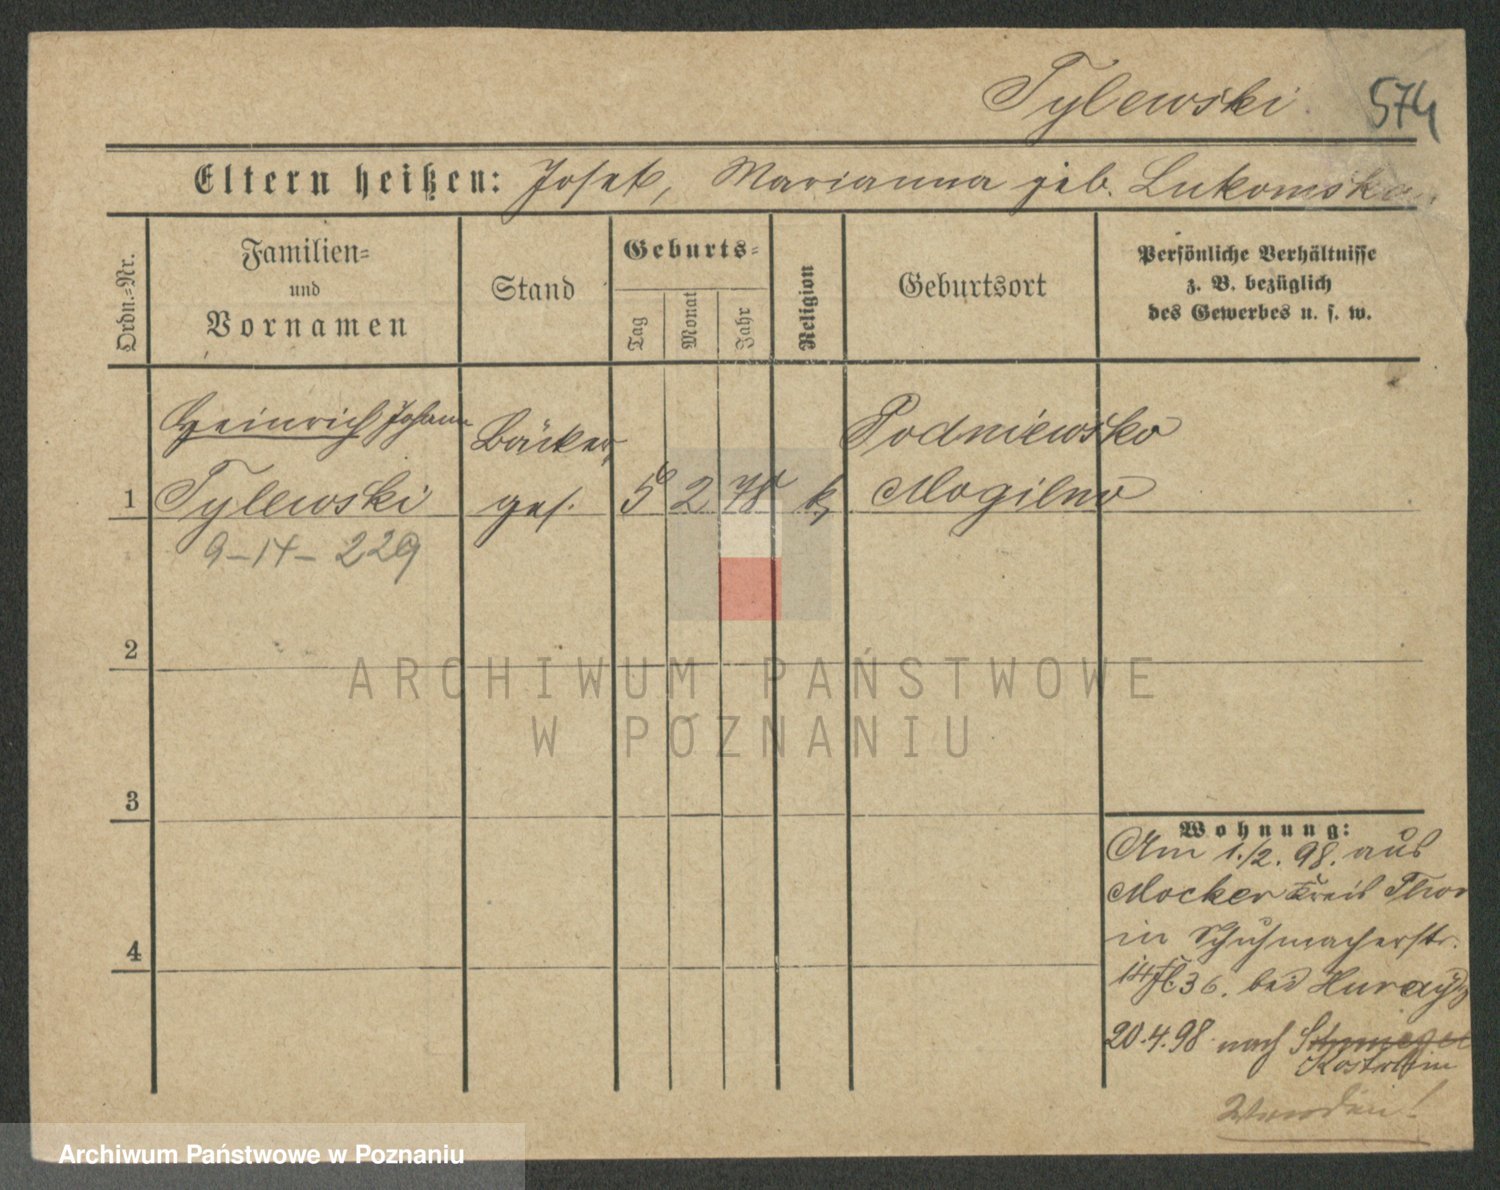 Tylewski
574
Eltern heißen: Josef, Marianna geb. Lukomska
Ordn.=Nr.
Familien=
und
Vornamen
Stand
Geburts=
Tag
Monat
Jahr
Religion
Geburtsort
Persönliche Verhältnisse
z. B. bezüglich
des Gewerbes u. s. w.
Heinrich Johann
Bäcker
Podniewsko
1 Tylewski ges. 5 2 78 k. Mogilno
9-14-229
2
3
4
Wohnung:
Am 1./2. 98. aus
Mocker Kreis Thor
in Schuhmacherstr.
36. bei
20.4.98 nach
Kostschin
Wenden!
ARCHIWUM PAŃSTWOWE
W POZNANIU
Archiwum Państwowe w Poznaniu